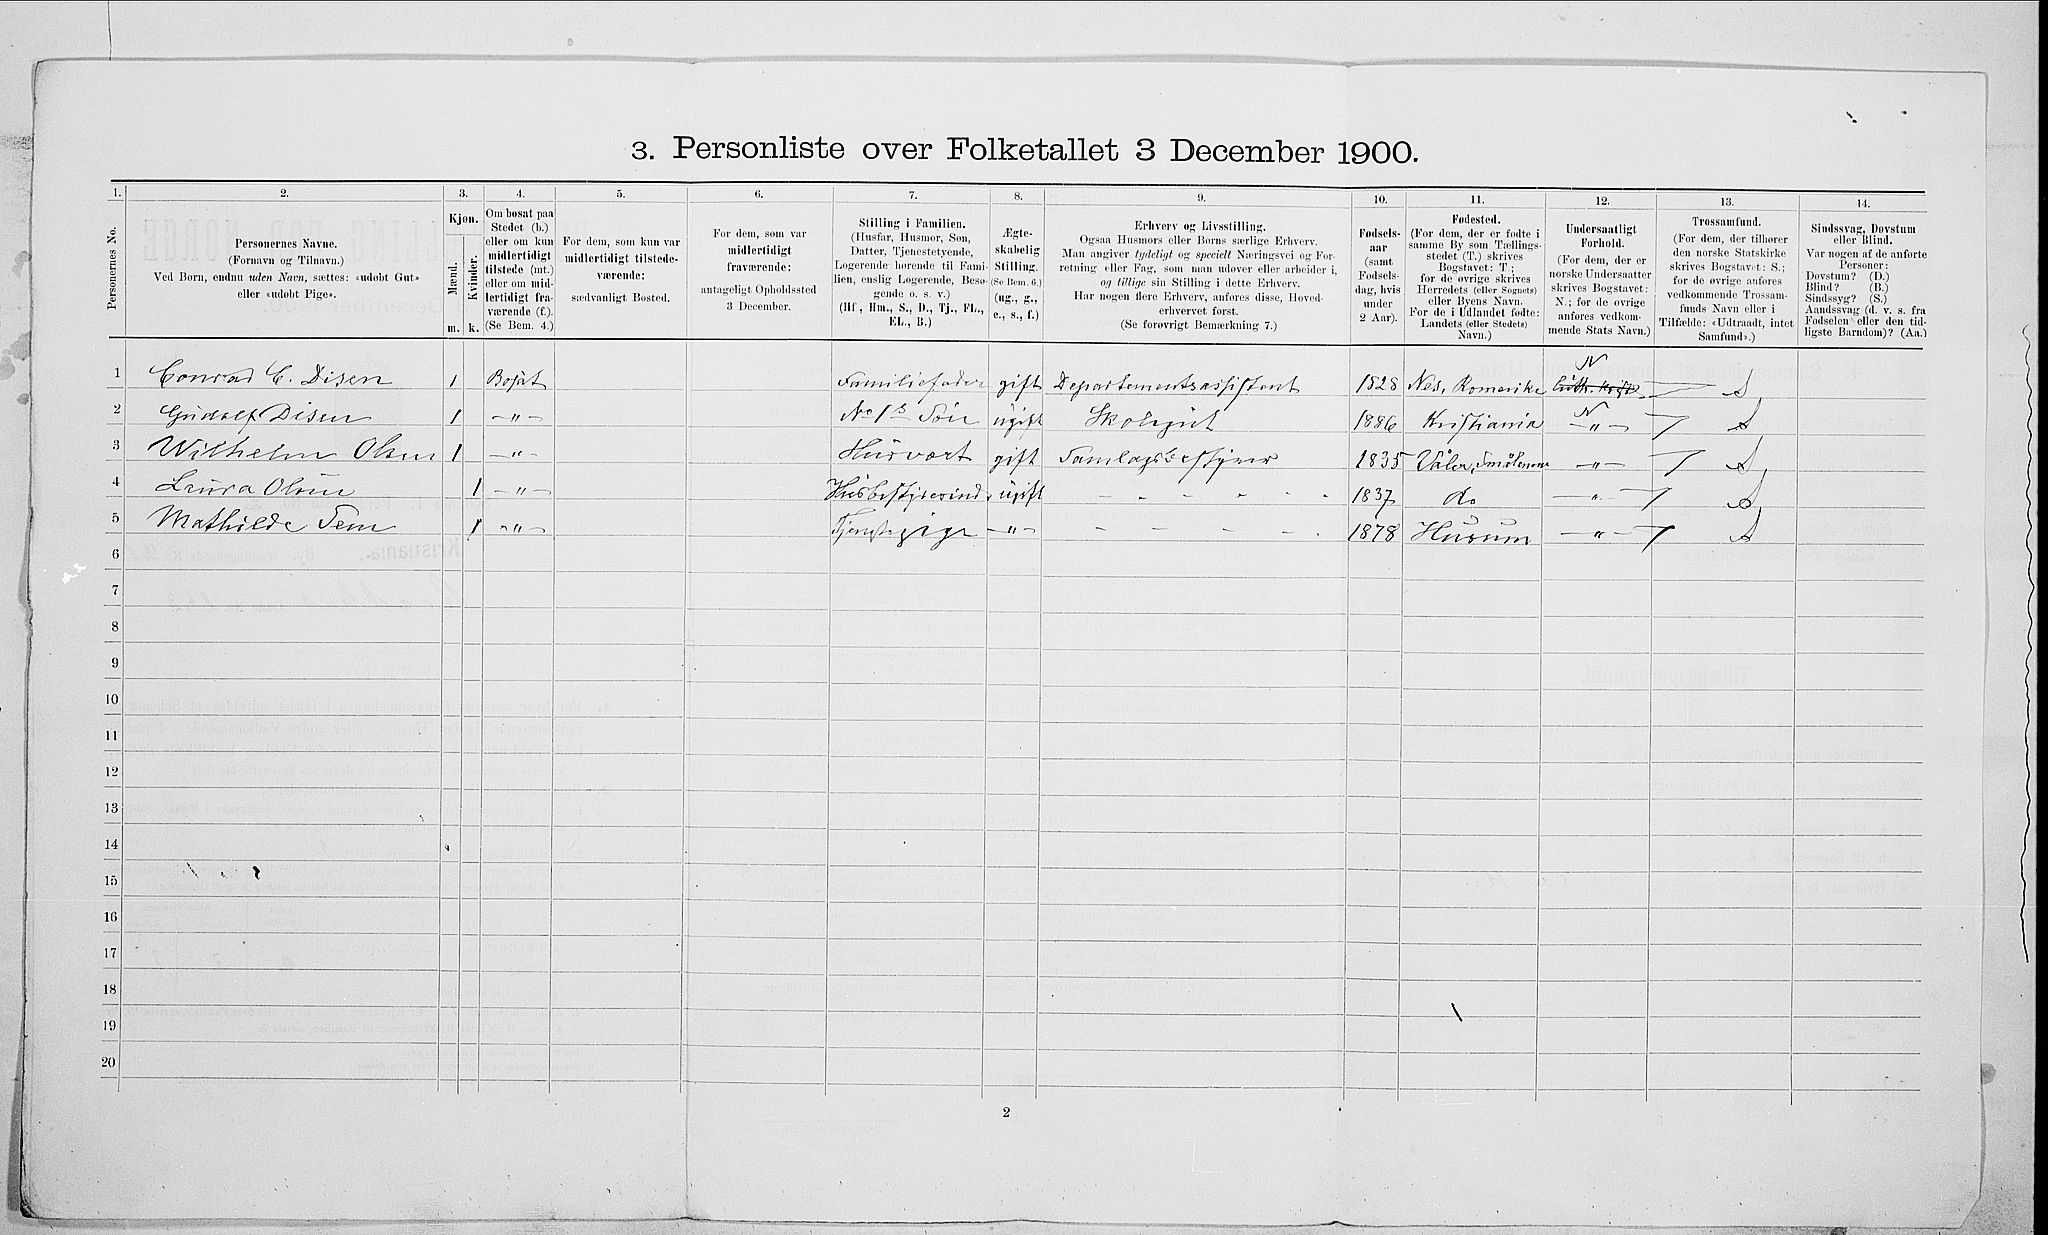 3. Personliste over Folketallet 3 December 1900.
1. 2. 3. 4. 5. 6. 7. 8. 9. 10. 11. 12. 13. 14.
Personernes No.
Personernes Navne.
(Fornavn og Tilnavn.)
Ved Børn, endnu uden Navn, sættes: «udøbt Gut»
eller «udøbt Pige».
Kjøn.
Mænd.
Kvinder.
m. k.
Om bosat paa
Stedet (b.)
eller om kun
midlertidigt
tilstede (mt.)
eller om mid-
lertidigt fra-
værende (f.).
(Se Bem. 4.)
For dem, som kun var
midlertidigt tilstede-
værende:
sædvanligt Bosted.
For dem, som var
midlertidigt
fraværende:
antageligt Opholdssted
3 December.
Stilling i Familien.
(Husfar, Husmor, Søn,
Datter, Tjenestetyende,
Logerende hørende til Fami-
lien, enslig Logerende, Besø-
gende o. s. v.)
(Hf., Hm., S., D., Tj., FL.,
EL., B.)
Ægte-
skabelig
Stilling.
(Se Bem. 6.)
(ug., g.,
e., s., f.)
Erhverv og Livsstilling.
Ogsaa Husmors eller Børns særlige Erhverv.
Man angiver tydeligt og specielt Næringsvei og For-
retning eller Fag, som man udøver eller arbeider i,
og tillige sin Stilling i dette Erhverv.
Har nogen flere Erhverv, anføres disse, Hoved-
erhvervet først.
(Se forøvrigt Bemærkning 7.)
Fødsels-
aar
(samt
Fødsels-
dag, hvis
under
2 Aar).
Fødested.
(For dem, der er fødte i
samme By som Tællings-
stedet (T.) skrives
Bogstavet: T.;
for de øvrige skrives
Herredets (eller Sognets)
eller Byens Navn.
For de i Udlandet fødte:
Landets (eller Stedets)
Navn.)
Undersaatligt
Forhold.
(For dem, der er
norske Undersaatter
skrives Bogstavet:
N.; for de øvrige
anføres vedkom-
mende Stats Navn.)
Trossamfund.
(For dem, der tilhører
den norske Statskirke
skrives Bogstavet: S.;
for de øvrige anføres
vedkommende Trossam-
funds Navn eller i
Tilfælde: «Udtraadt, intet
Samfund».)
Sindssvag, Døvstum
eller Blind.
Var nogen af de anførte
Personer:
Døvstum? (D.)
Blind? (B.)
Sindssyg? (S.)
Aandssvag (d. v. s. fra
Fødselen eller den tid-
ligste Barndom)? (Aa.)
1 Conrad C. Disen 1 Bosat Familiefader gift Departementsassistent 1828 Nes, Romerike N S
2 Gudolf Disen 1 -"- No 1s Søn ugift Skolegut 1886 Kristiania N -"- S
3 Wilhelm Olsen 1 -"- Husvært gift Samlagsbestyrer 1835 Våler, Smålenene -"- S
4 Laura Olsen 1 -"- Husbestyrerinde ugift - - - - - - 1837 do -"- S
5 Mathilde Tem 1 -"- Tjenstepige -"- - - - - - 1878 Hurum -"- S
6
7
8
9
10
11
12
13
14
15
16
17
18
19
20
2